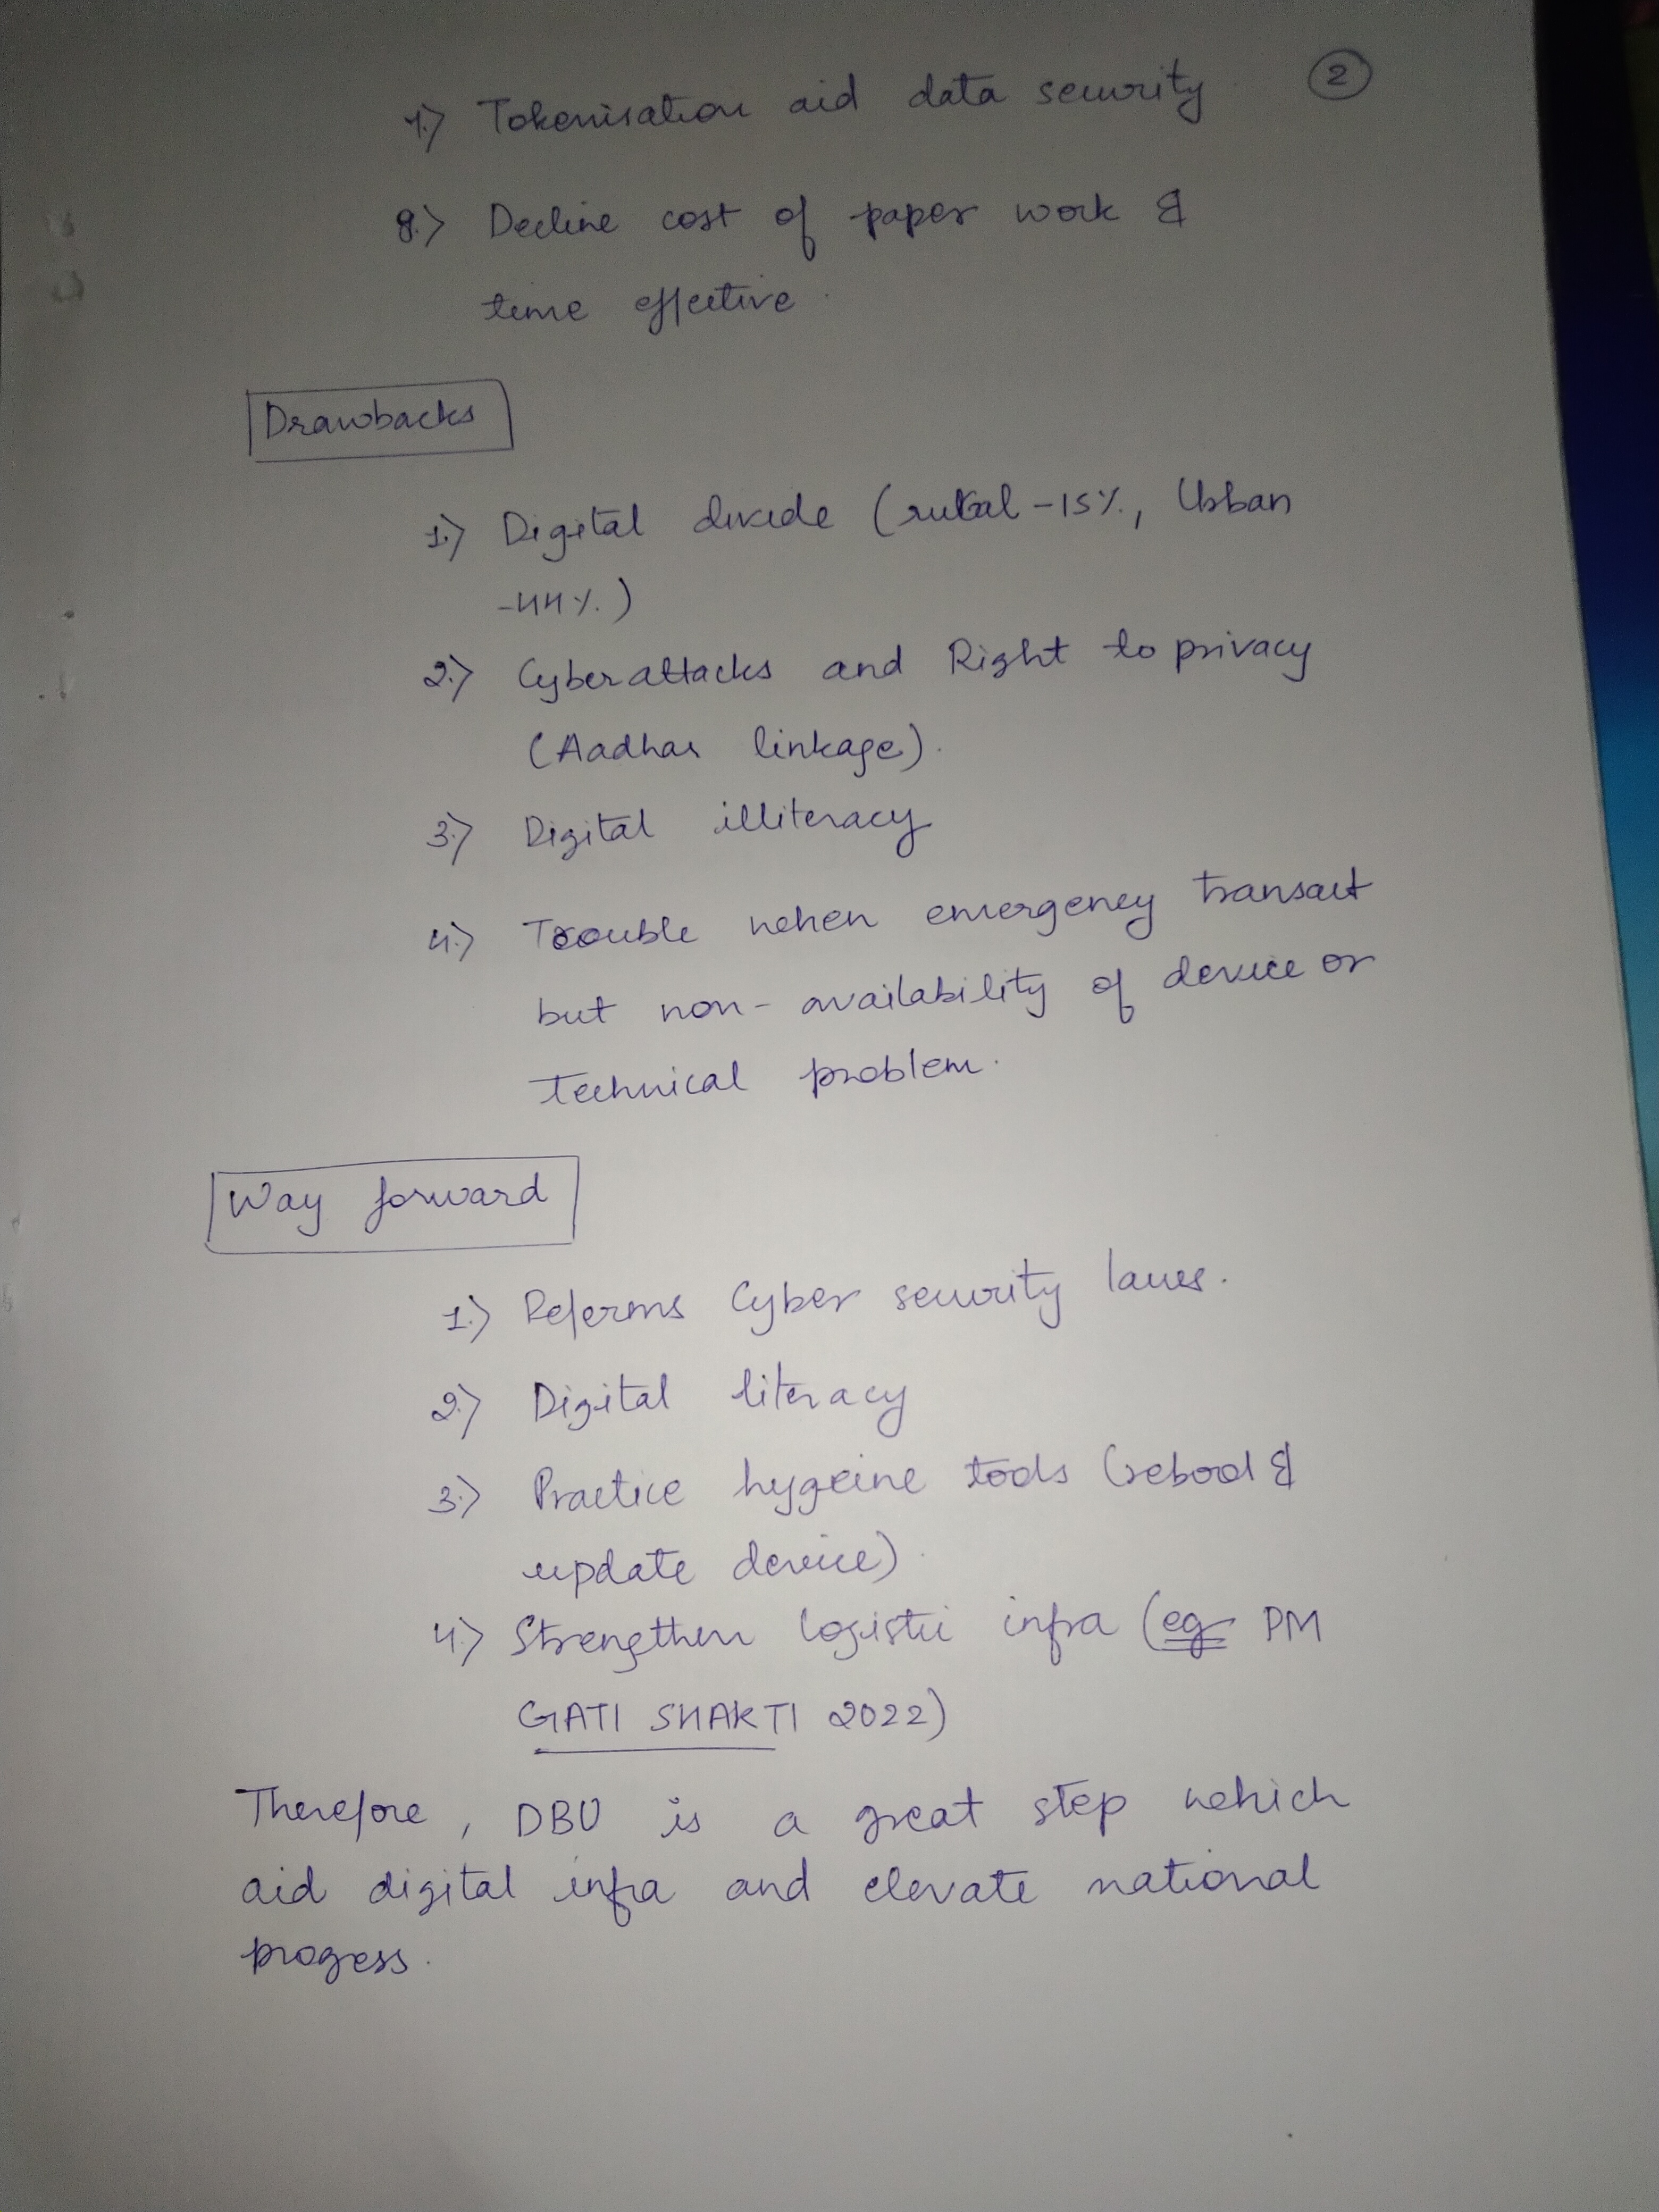 2
7.) Tokenisation aid data security
8.) Decline cost of paper work &
time effective.
Drawbacks
1.) Digital divide (rural -15%, Urban
-44%.)
2.) Cyber attacks and Right to privacy
(Aadhar linkage).
3.) Digital illiteracy
4.) Trouble when emergency transact
but non-availability of device or
technical problem.
Way forward
1.) Reforms Cyber security laws.
2.) Digital literacy
3.) Practice hygeine tools (reboot &
update device).
4.) Strengthen logistic infra (eg PM
GATI SHAKTI 2022)
Therefore, DBU is a great step which
aid digital infra and elevate national
progess.